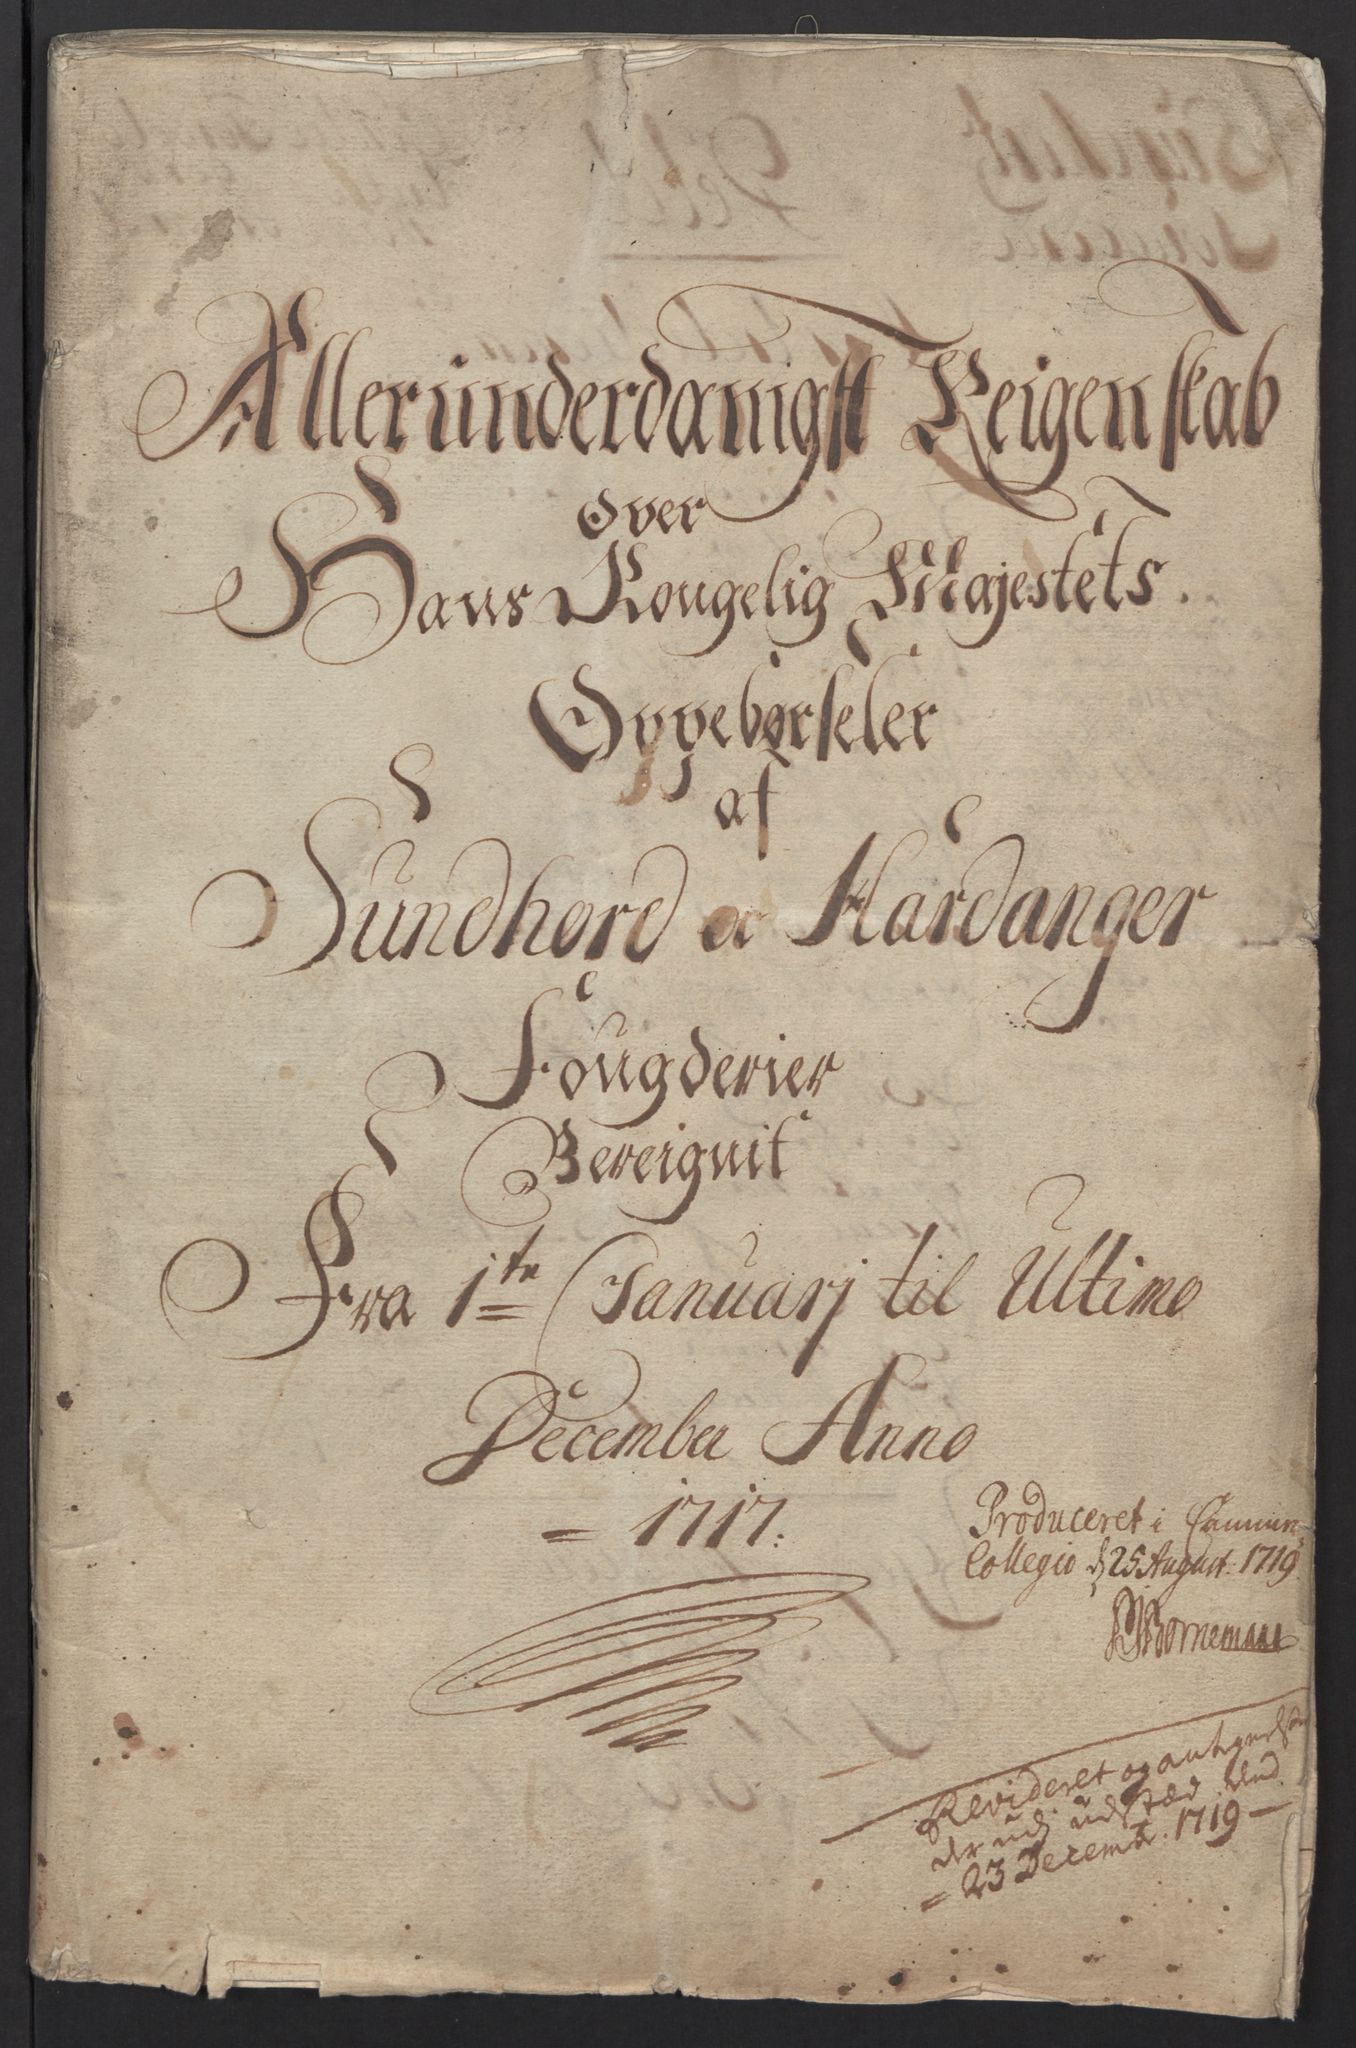 Allerunderdanigst Reigenskab
over
Hans Kongelig Majestets
Oppebørseler
af
Sundhord oc Hardanger
Fougderier
Bereignit
Fra 1te Januarj til Ultimo
December Anno
= 1717:
Produceret i Cammer
Collegio d 25 August: 1719
Bornemann
Revideret og antegnelser
der udj udstæd dend
= 23 Decembr. 1719 —